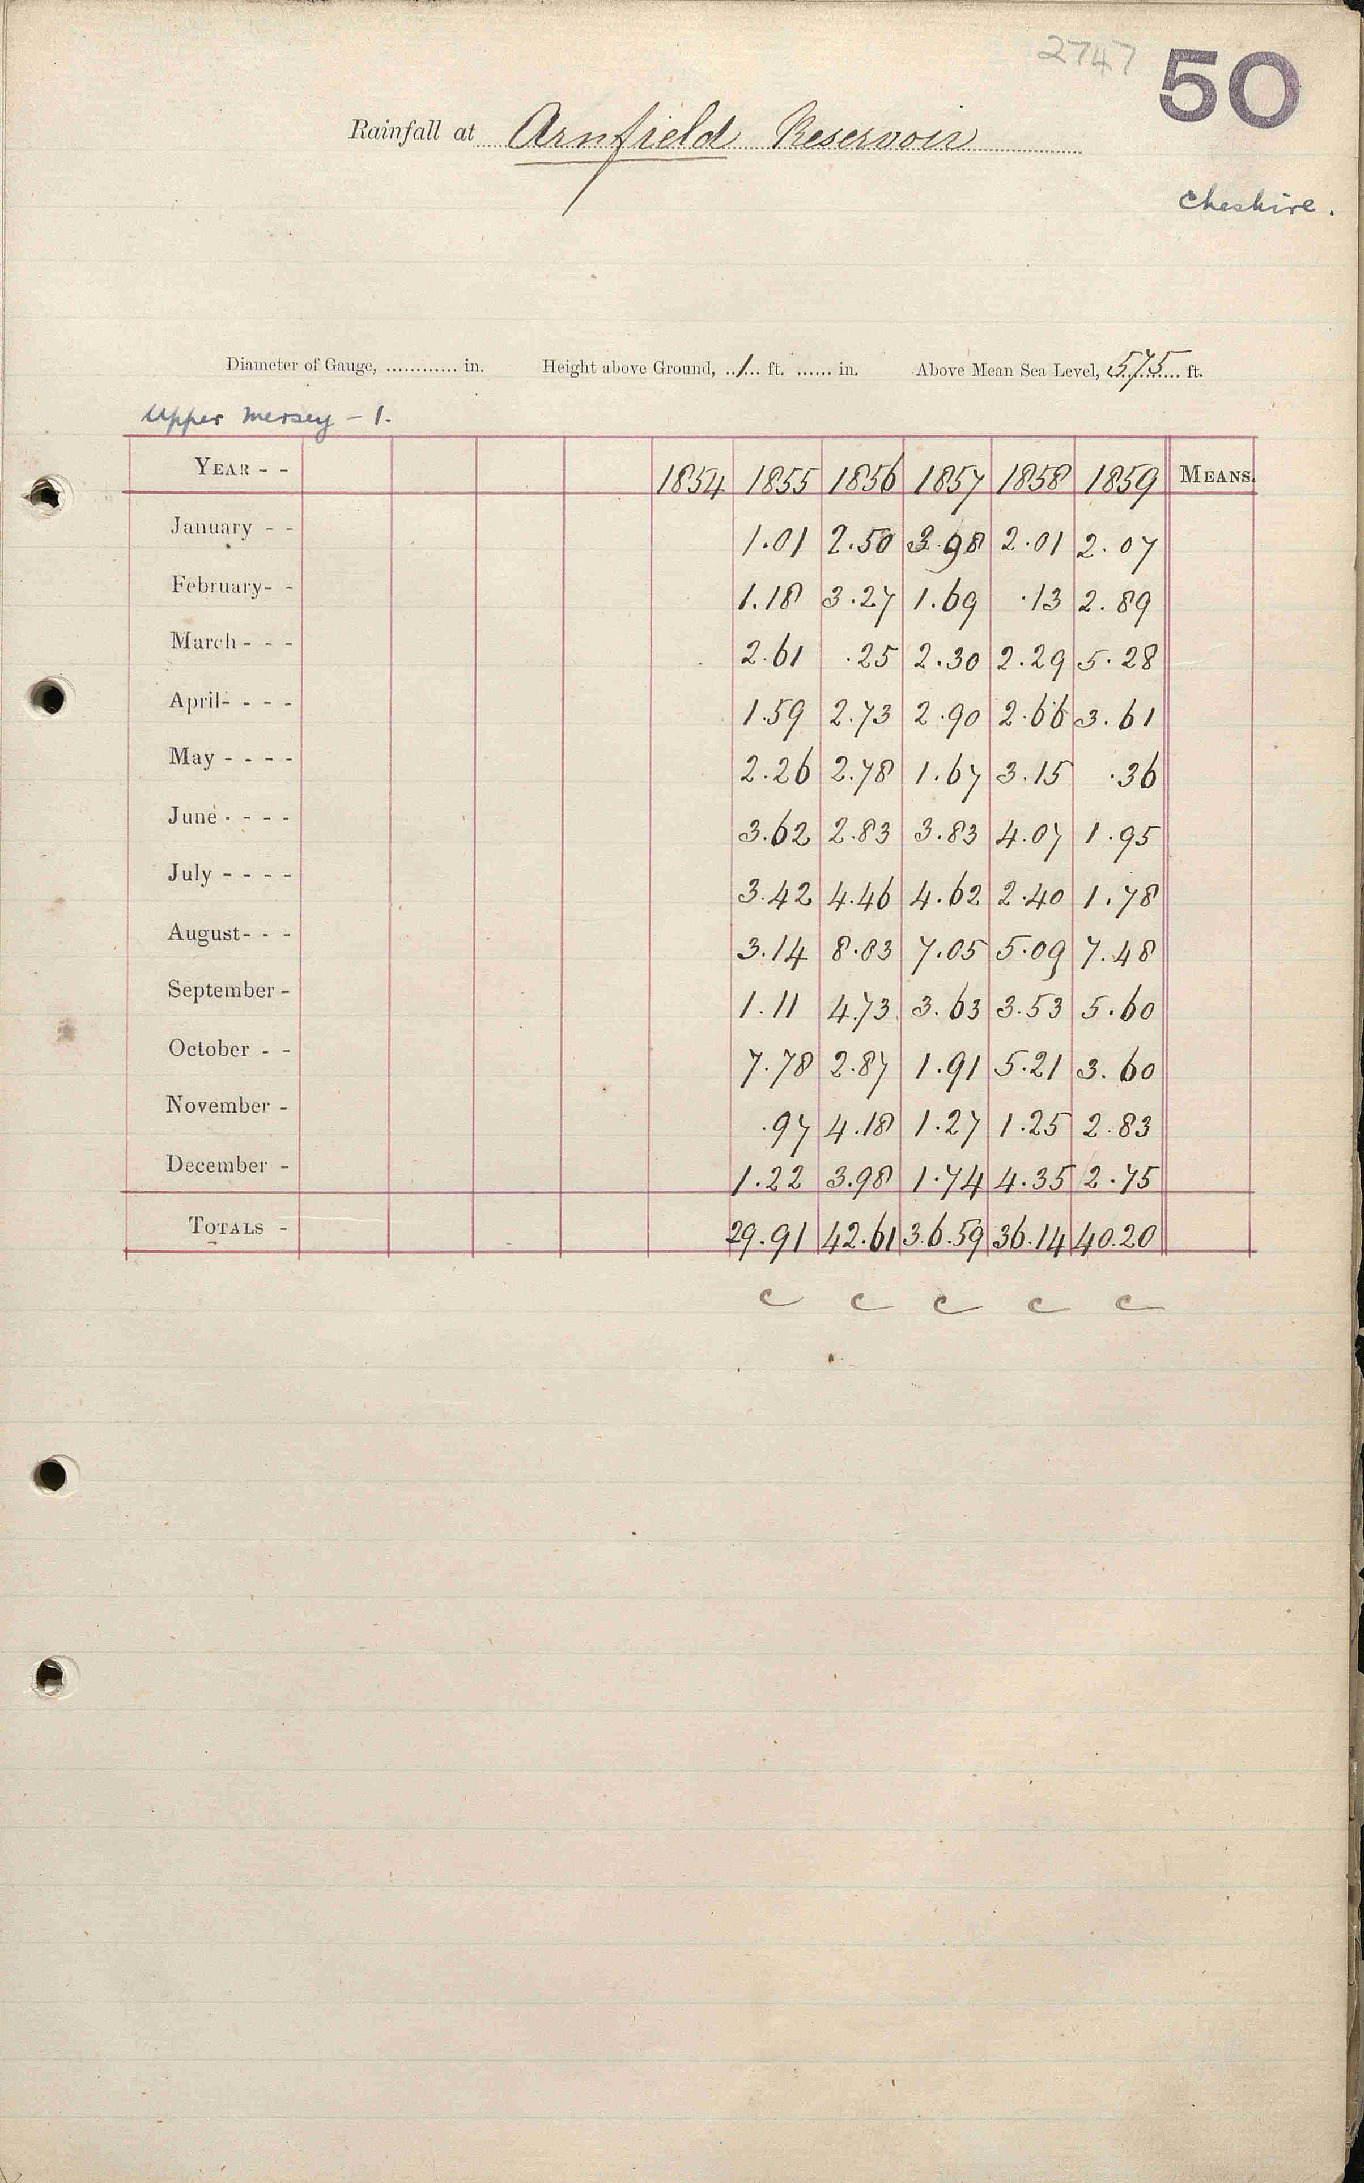 2747 50
Rainfall at Arnfield Reservoir
Cheshire.
Diameter of Gauge, ............ in. Height above Ground, ..1... ft. ...... in. Above Mean Sea Level, 575 ft.
Upper Mersey - 1.
YEAR - - 1854 1855 1856 1857 1858 1859 MEANS.
January - - 1.01 2.50 3.98 2.01 2.07
February - - 1.18 3.27 1.69 .13 2.89
March - - - 2.61 .25 2.30 2.29 5.28
April - - - - 1.59 2.73 2.90 2.66 3.61
May - - - - 2.26 2.78 1.67 3.15 .36
June - - - - 3.62 2.83 3.83 4.07 1.95
July - - - - 3.42 4.46 4.62 2.40 1.78
August - - - 3.14 8.03 7.05 5.09 7.48
September - 1.11 4.73 3.63 3.53 5.60
October - - 7.78 2.87 1.91 5.21 3.60
November - .97 4.18 1.27 1.25 2.83
December - 1.22 3.98 1.74 4.35 2.75
TOTALS - 29.91 42.61 36.59 36.14 40.20
c c c c c